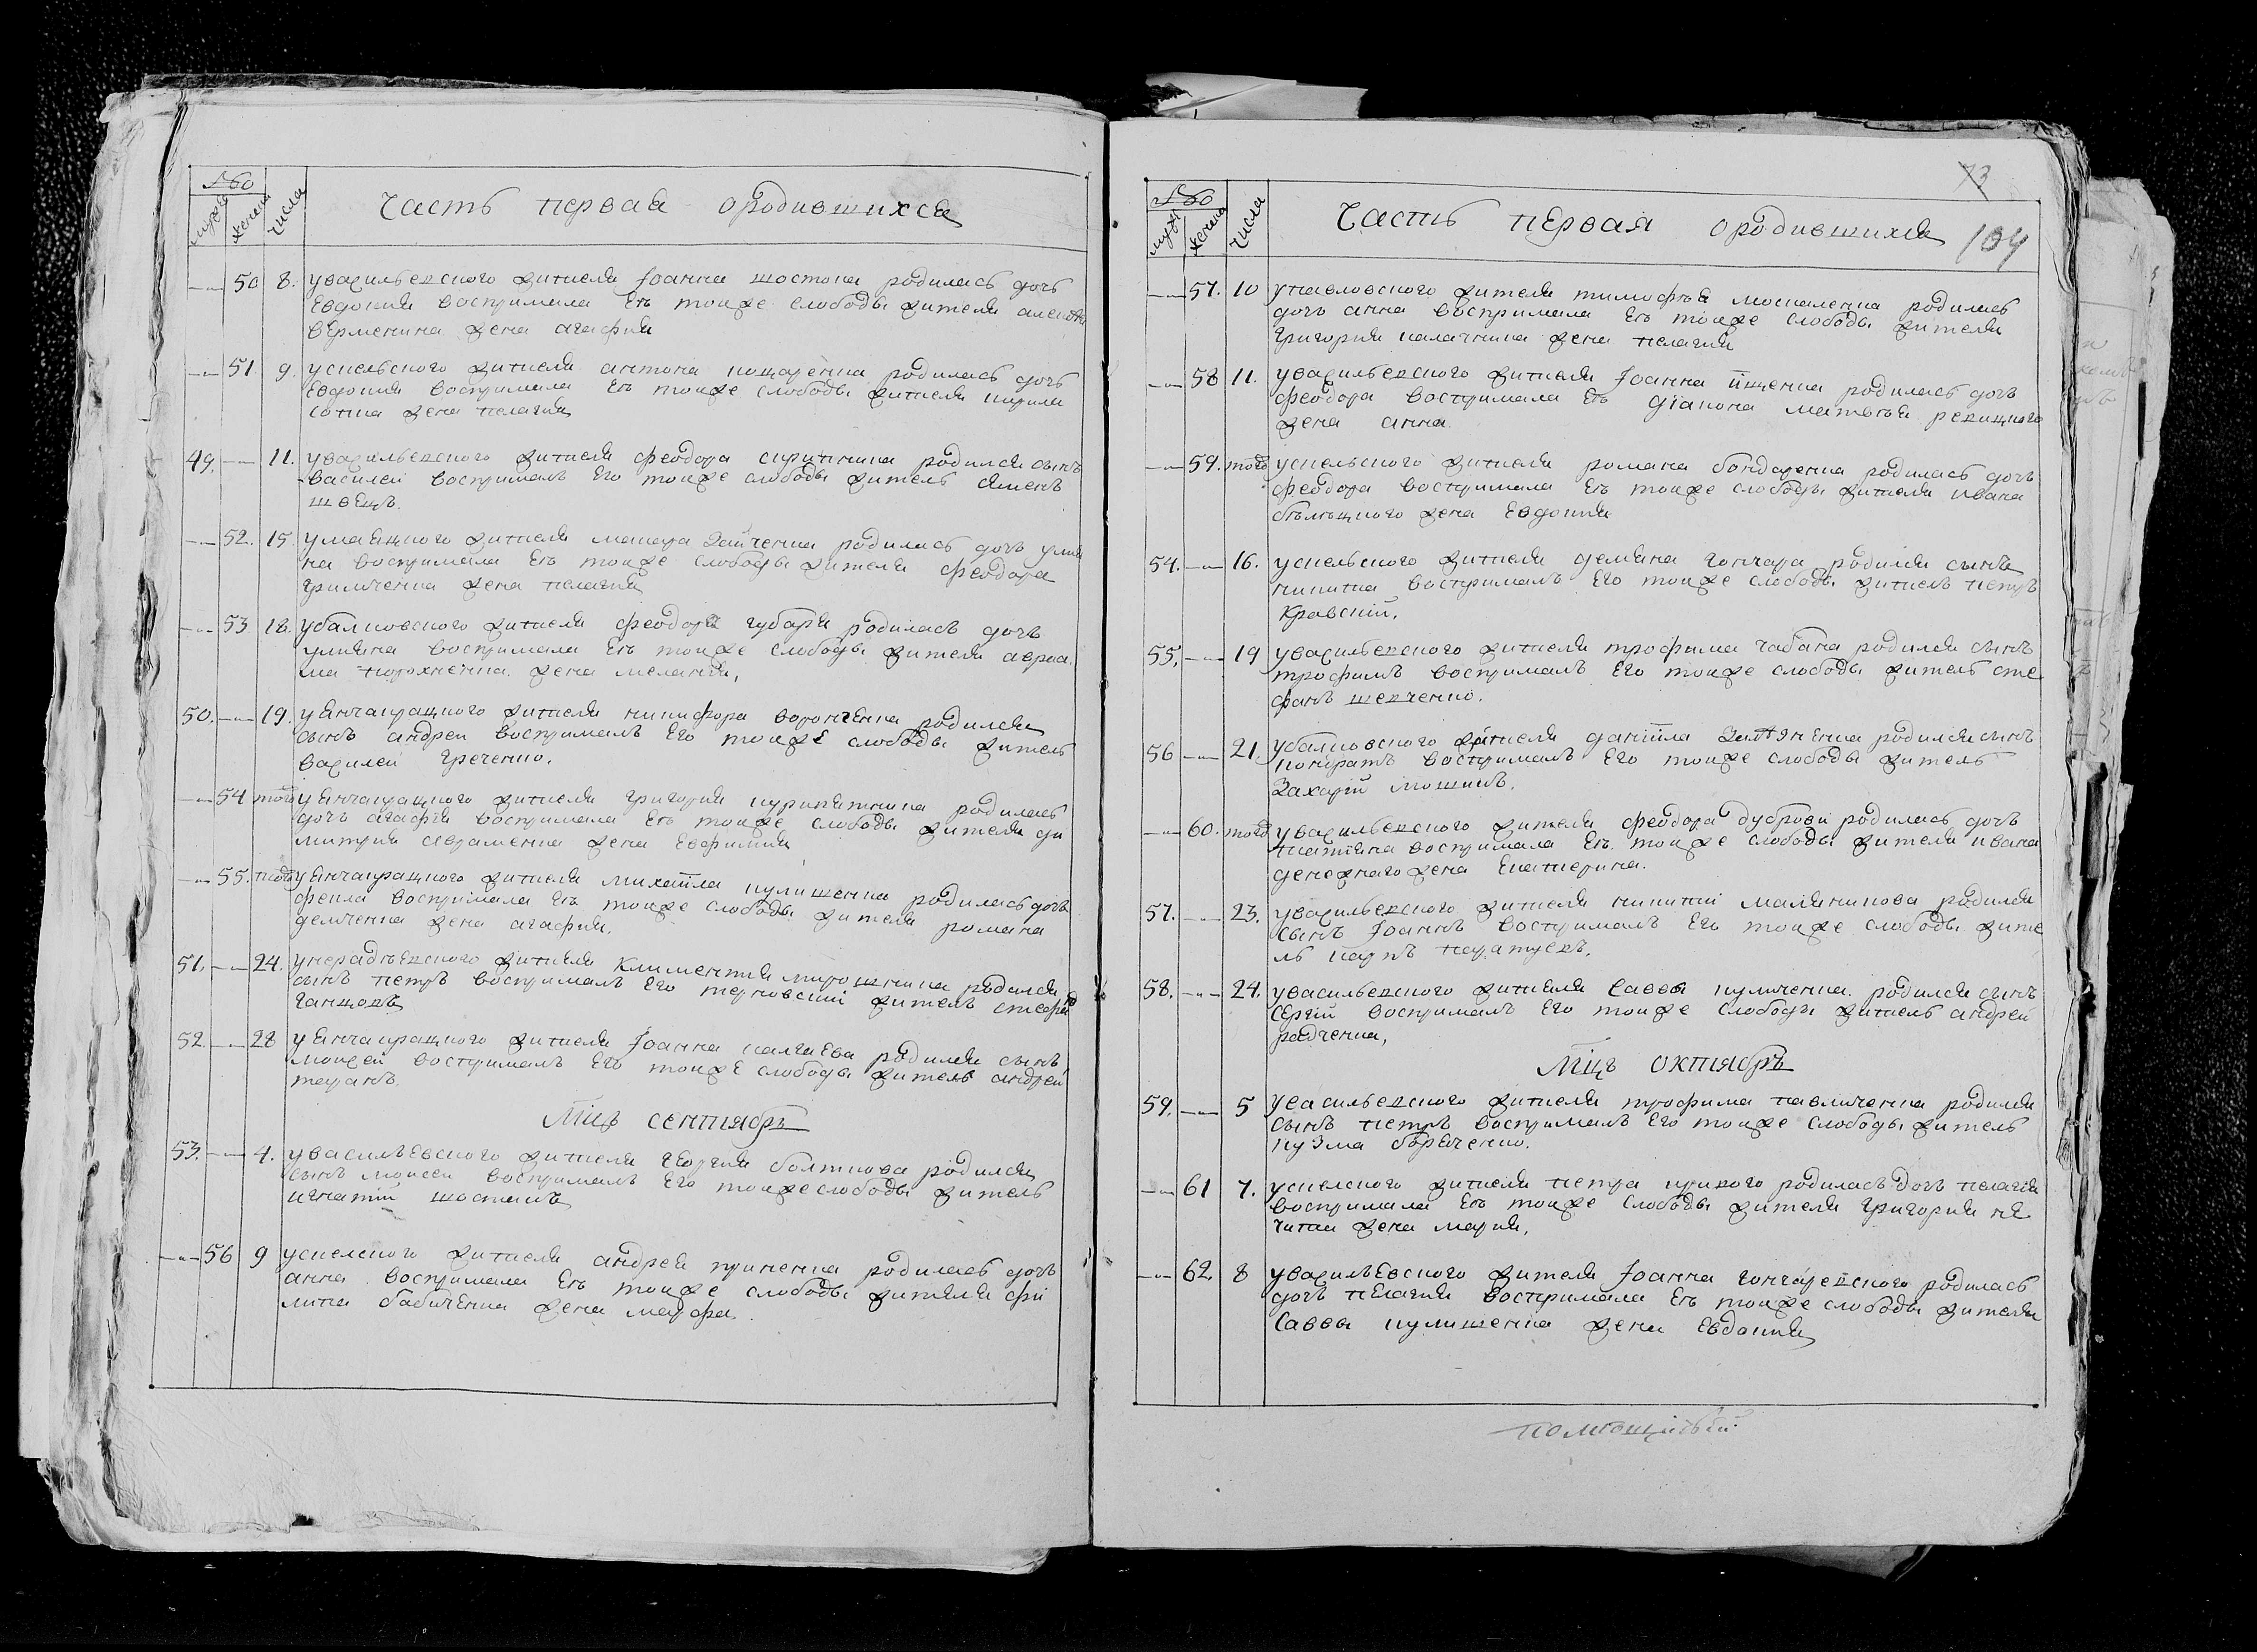 Лѣто
мужес женска числа
Часть первая ородившихся
50 8. уваσильевского жителя Іоанна шостопа родилась дочь
Евдокия воспримала Еѣ тояже слободы жителя алексѣя
вЕрменика жена агафия
51. 9. успельского жителя антона кошаренка родилась дочь
Евдокия воспримала Еѣ тояже слободы жителя кирила
сотника жена пелагия
49. 11. увасильевского жителя феодора скрипника родился сынъ
василей воспрималъ Его тояже слободы житель семенъ
швецъ.
52. 15. умаяцкого жителя макара Зайченка родилась дочь улия
на воспримала Еѣ тояже слободы жителя феодора
гринченка жена пелагия
53 18. убалковского жителя феодора губаря родилась дочь
улияна воспримала Еѣ тояже слободы жителя авраа
ма порохненка жена мелания,
50. 19. уянчакрацкого жителя никифора воронченка родился
сынъ андрей воспрималъ Его тояжЕ слободы житель
василей гречечко.
54 того уянчакрацкого жителя григория родилась
дочь агафия воспримала Еѣ тояже слободы жителя ди
митрия авраменка жена Евфимия
55. того уянчакрацкого жителя михаила кулишенка родилась дочь
фекла воспримала Еѣ тояже слободы жителя романа
демченка жена агафия.
51. 24. жителя Климентия мирошника родился
сынъ петръ воспрималъ Его терновский житель стефанъ
ганцовъ
52. 28 уянчакрацкого жителя Іоанна калгаЕва родился сынъ
моисей воспрималъ Его тояжЕ слободы житель андрей
таранъ.
Мцъ сентябрь
53. 4. увасильевского жителя гЕоргия болткова родился
сынъ моисей воспрималъ Его тояжеслободы житель
игнатий шостакъ
56 9 успелского жителя андрея приненка родилась дочь
анна воспримала Еѣ тояже слободы жителя фи
липа бабиченка жена марфа.
73
Лѣто
мужес женска числа
Часть пЕрвая ородившихся 104
57. 10 упавловского жителя тимофѣя москаленка родилась
дочь анна воспримала Еѣ тояже слободы жителя
григория калачника жена пелагия
58 11. увасильевского жителя Іоанна ищенка родилась дочь
феодора воспримала Еѣ діакона матвѣя рЕвицкого
жена анна.
59. того успельского жителя романа бондаренка родилась дочь
феодора воспримала Еѣ тояже слободы жителя ивана
бѣлецкого жена Евдокия
54. 16. успельского жителя демяна гончара родился сынъ
никита воспрималъ Его тояже слободы житель петръ
Кравский.
55. 19 увасильевского жителя трофима чабана родился сынъ
трофимъ воспрималъ Его тояже слободы житель сте
фанъ шевченко.
56 21. убалковского жителя даниила родился сынъ
кондратъ воспрималъ Его тояже слободы житель
Захарій мошинъ.
60. того увасильевского жителя феодора дубровы родилась дочь
татияна воспримала Еѣ тояже слободы жителя ивана
денежнаго жена Екатерина.
57. 23. увасильевского жителя никиты малиникова родился
сынъ Іоаннъ воспрималъ Его тояже слободы жите
ль карпъ
58. 24. увасильевского жителя Саввы куличенка родился сынъ
Сергій воспрималъ Его тояже слободы житель андрей
радченка,
Мцъ октябрь
59. 5 увасильевского жителя трофима павличенка родился
сынъ петръ воспрималъ Его тояже слободы житель
кузма
61 7. успелского жителя петра кривого родилась дочь пелагия
воспримала Еѣ тояже слободы жителя григория не
читая жена мария,
62. 8 увасильЕвского жителя Іоанна гончаревского родилась
дочь пЕлагия воспримала Еѣ тояже слободы жителя
Саввы кулишенка жена Евдокия